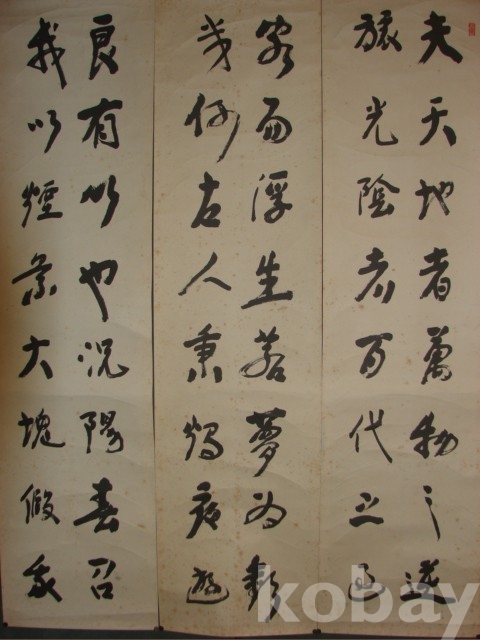 夫天地者萬物之逆
旅光陰者百代之過
客而浮生若夢為歡
幾何古人秉燭夜遊
良有以也況陽春召
我以煙景大塊假我
kobay